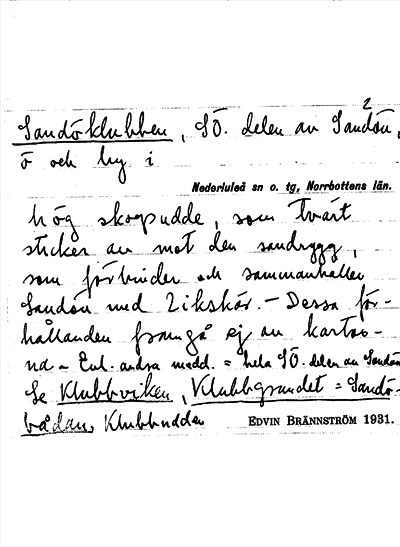 2
Sandöklubben, SÖ. delen av Sandön,
ö och by i
Nederluleå sn o. tg, Norrbottens län.
hög skogsudde, som tvärt
sticker av mot den sandrygg,
som förbinder och sammanhåller
Sandön med Likskär. – Dessa för-
hållanden framgå ej av kartor-
na – Enl. andra medd. = hela SÖ. delen av Sandön
Se Klubbviken, Klubbgrundet = Sandö-
bådan, Klubbudden
EDVIN BRÄNNSTRÖM 1931.